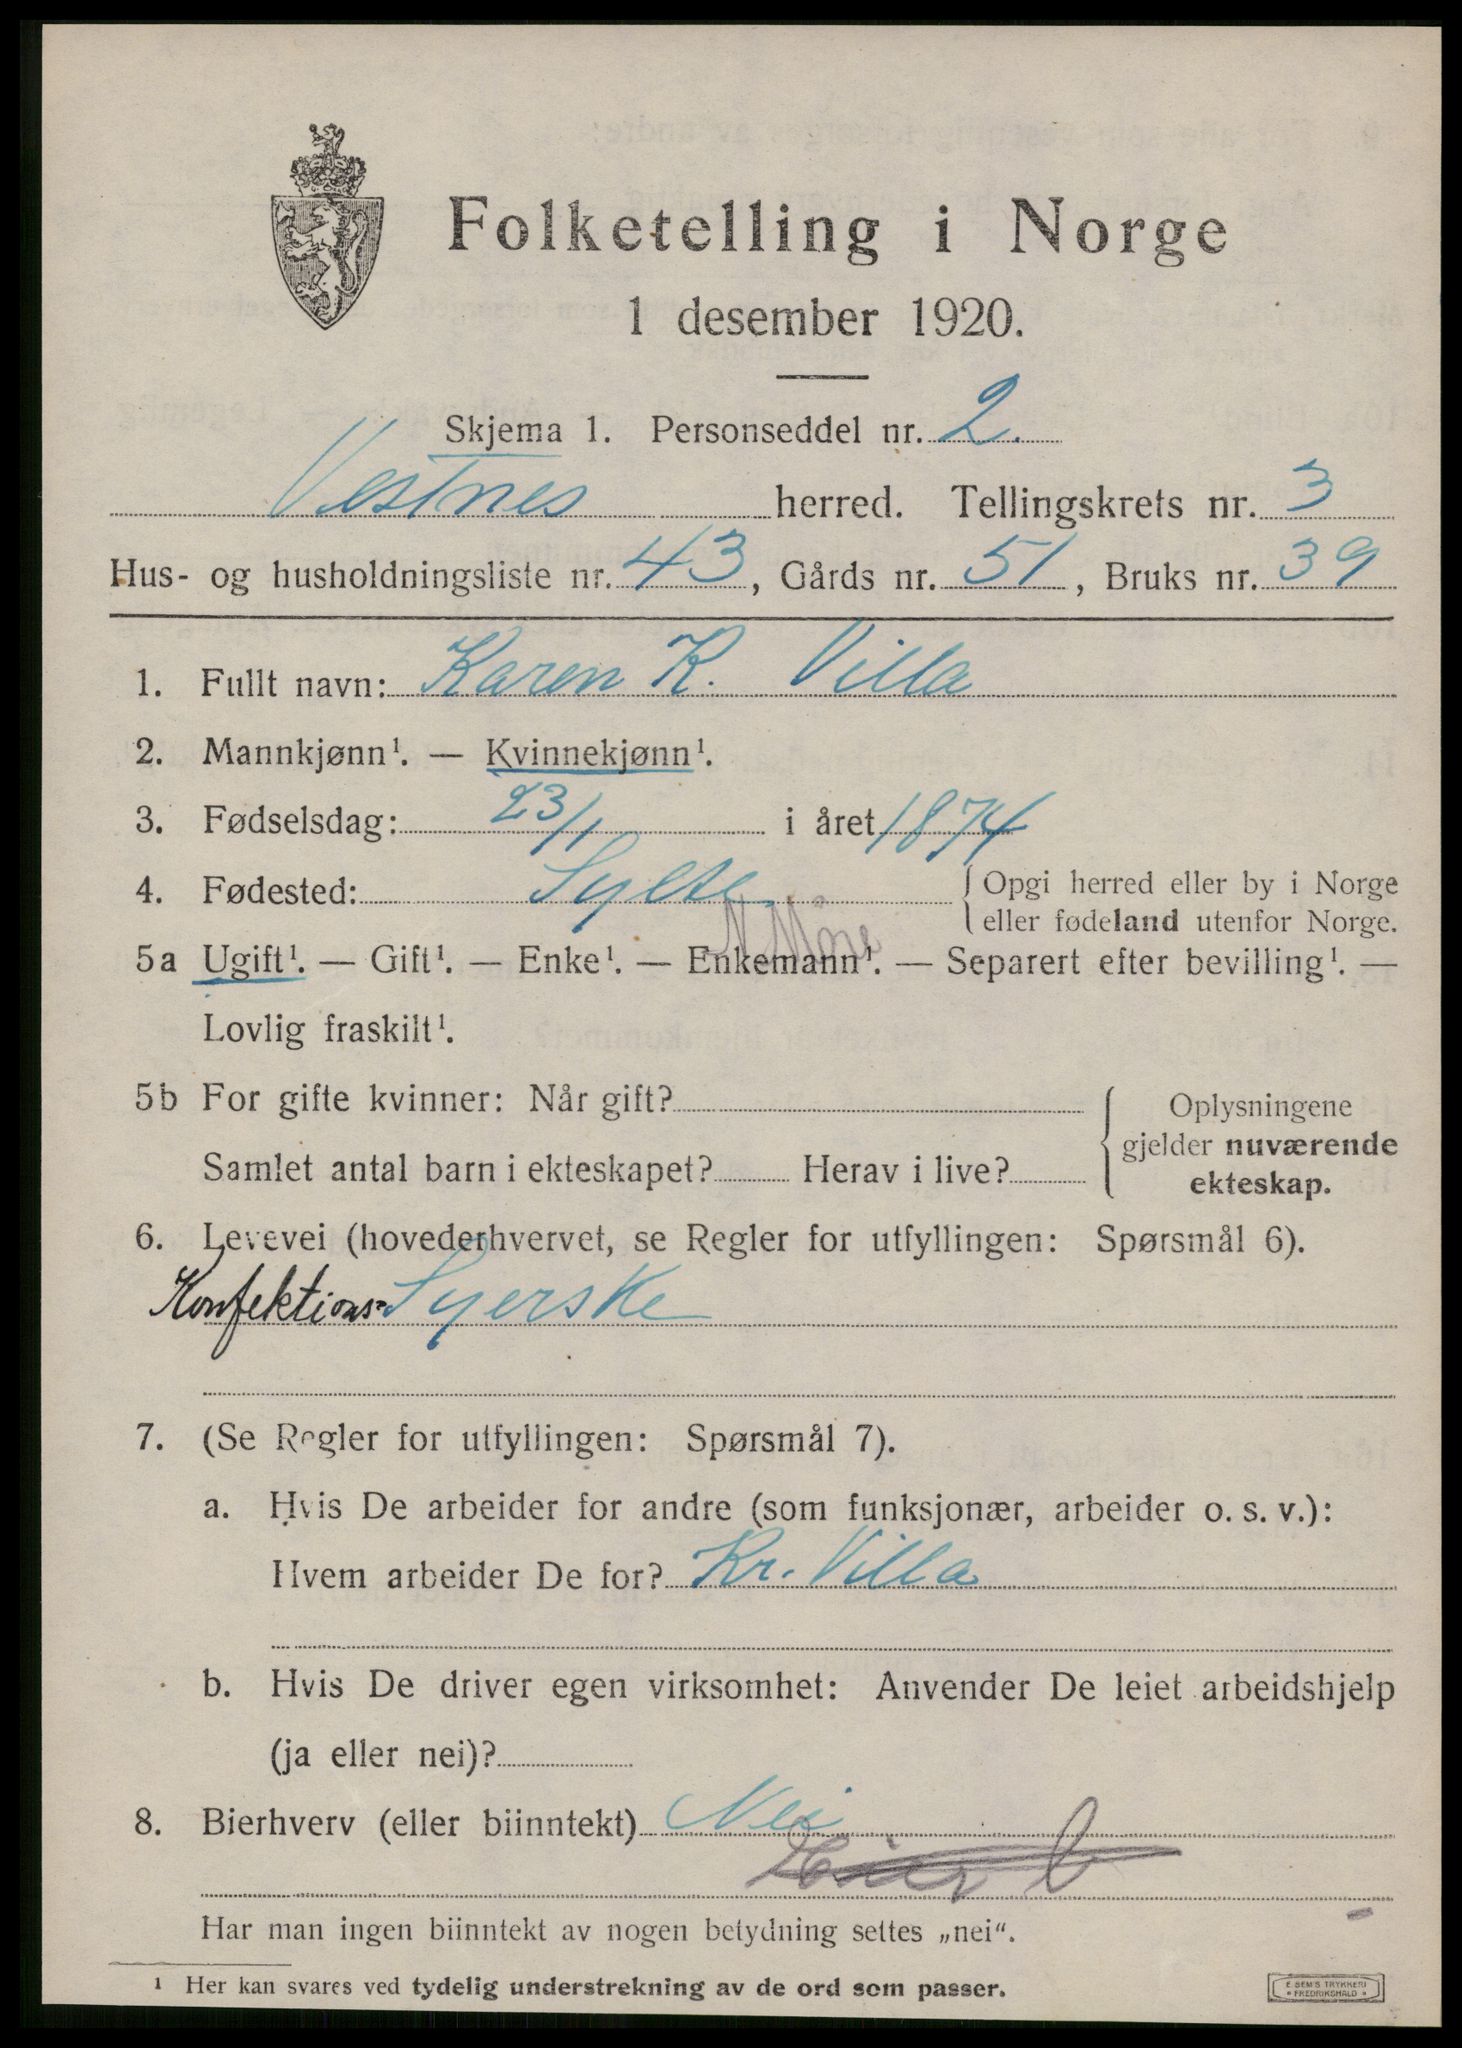 Folketelling i Norge
1 desember 1920.
Skjema 1. Personseddel nr. 2.
Vestnes herred. Tellingskrets nr. 3
Hus- og husholdningsliste nr. 43, Gårds nr. 51, Bruks nr. 39
1. Fullt navn: Karen K. Villa
2. Mannkjønn¹. — Kvinnekjønn¹.
3. Fødselsdag: 23/1 i året 1874
4. Fødested: Sylte { Opgi herred eller by i Norge
eller fødeland utenfor Norge.
N Möre
5a Ugift¹. — Gift¹. — Enke¹. — Enkemann¹. — Separert efter bevilling¹. —
Lovlig fraskilt¹.
5b For gifte kvinner: Når gift?
Samlet antal barn i ekteskapet? Herav i live?
Oplysningene
gjelder nuværende
ekteskap.
6. Levevei (hovederhvervet, se Regler for utfyllingen: Spørsmål 6).
Konfektions-Syerske
7. (Se Regler for utfyllingen: Spørsmål 7).
a. Hvis De arbeider for andre (som funksjonær, arbeider o. s. v.):
Hvem arbeider De for? Kr. Villa
b. Hvis De driver egen virksomhet: Anvender De leiet arbeidshjelp
(ja eller nei)?
8. Bierhverv (eller biinntekt) Nei
Har man ingen biinntekt av nogen betydning settes „nei“.
¹ Her kan svares ved tydelig understrekning av de ord som passer.
E SEM'S TRYKKERI
FREDRIKSHALD